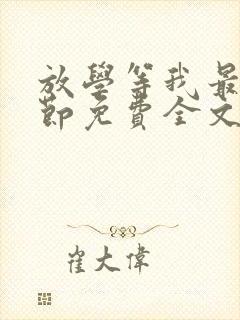 放學等我最
節免費全文
崔大偉